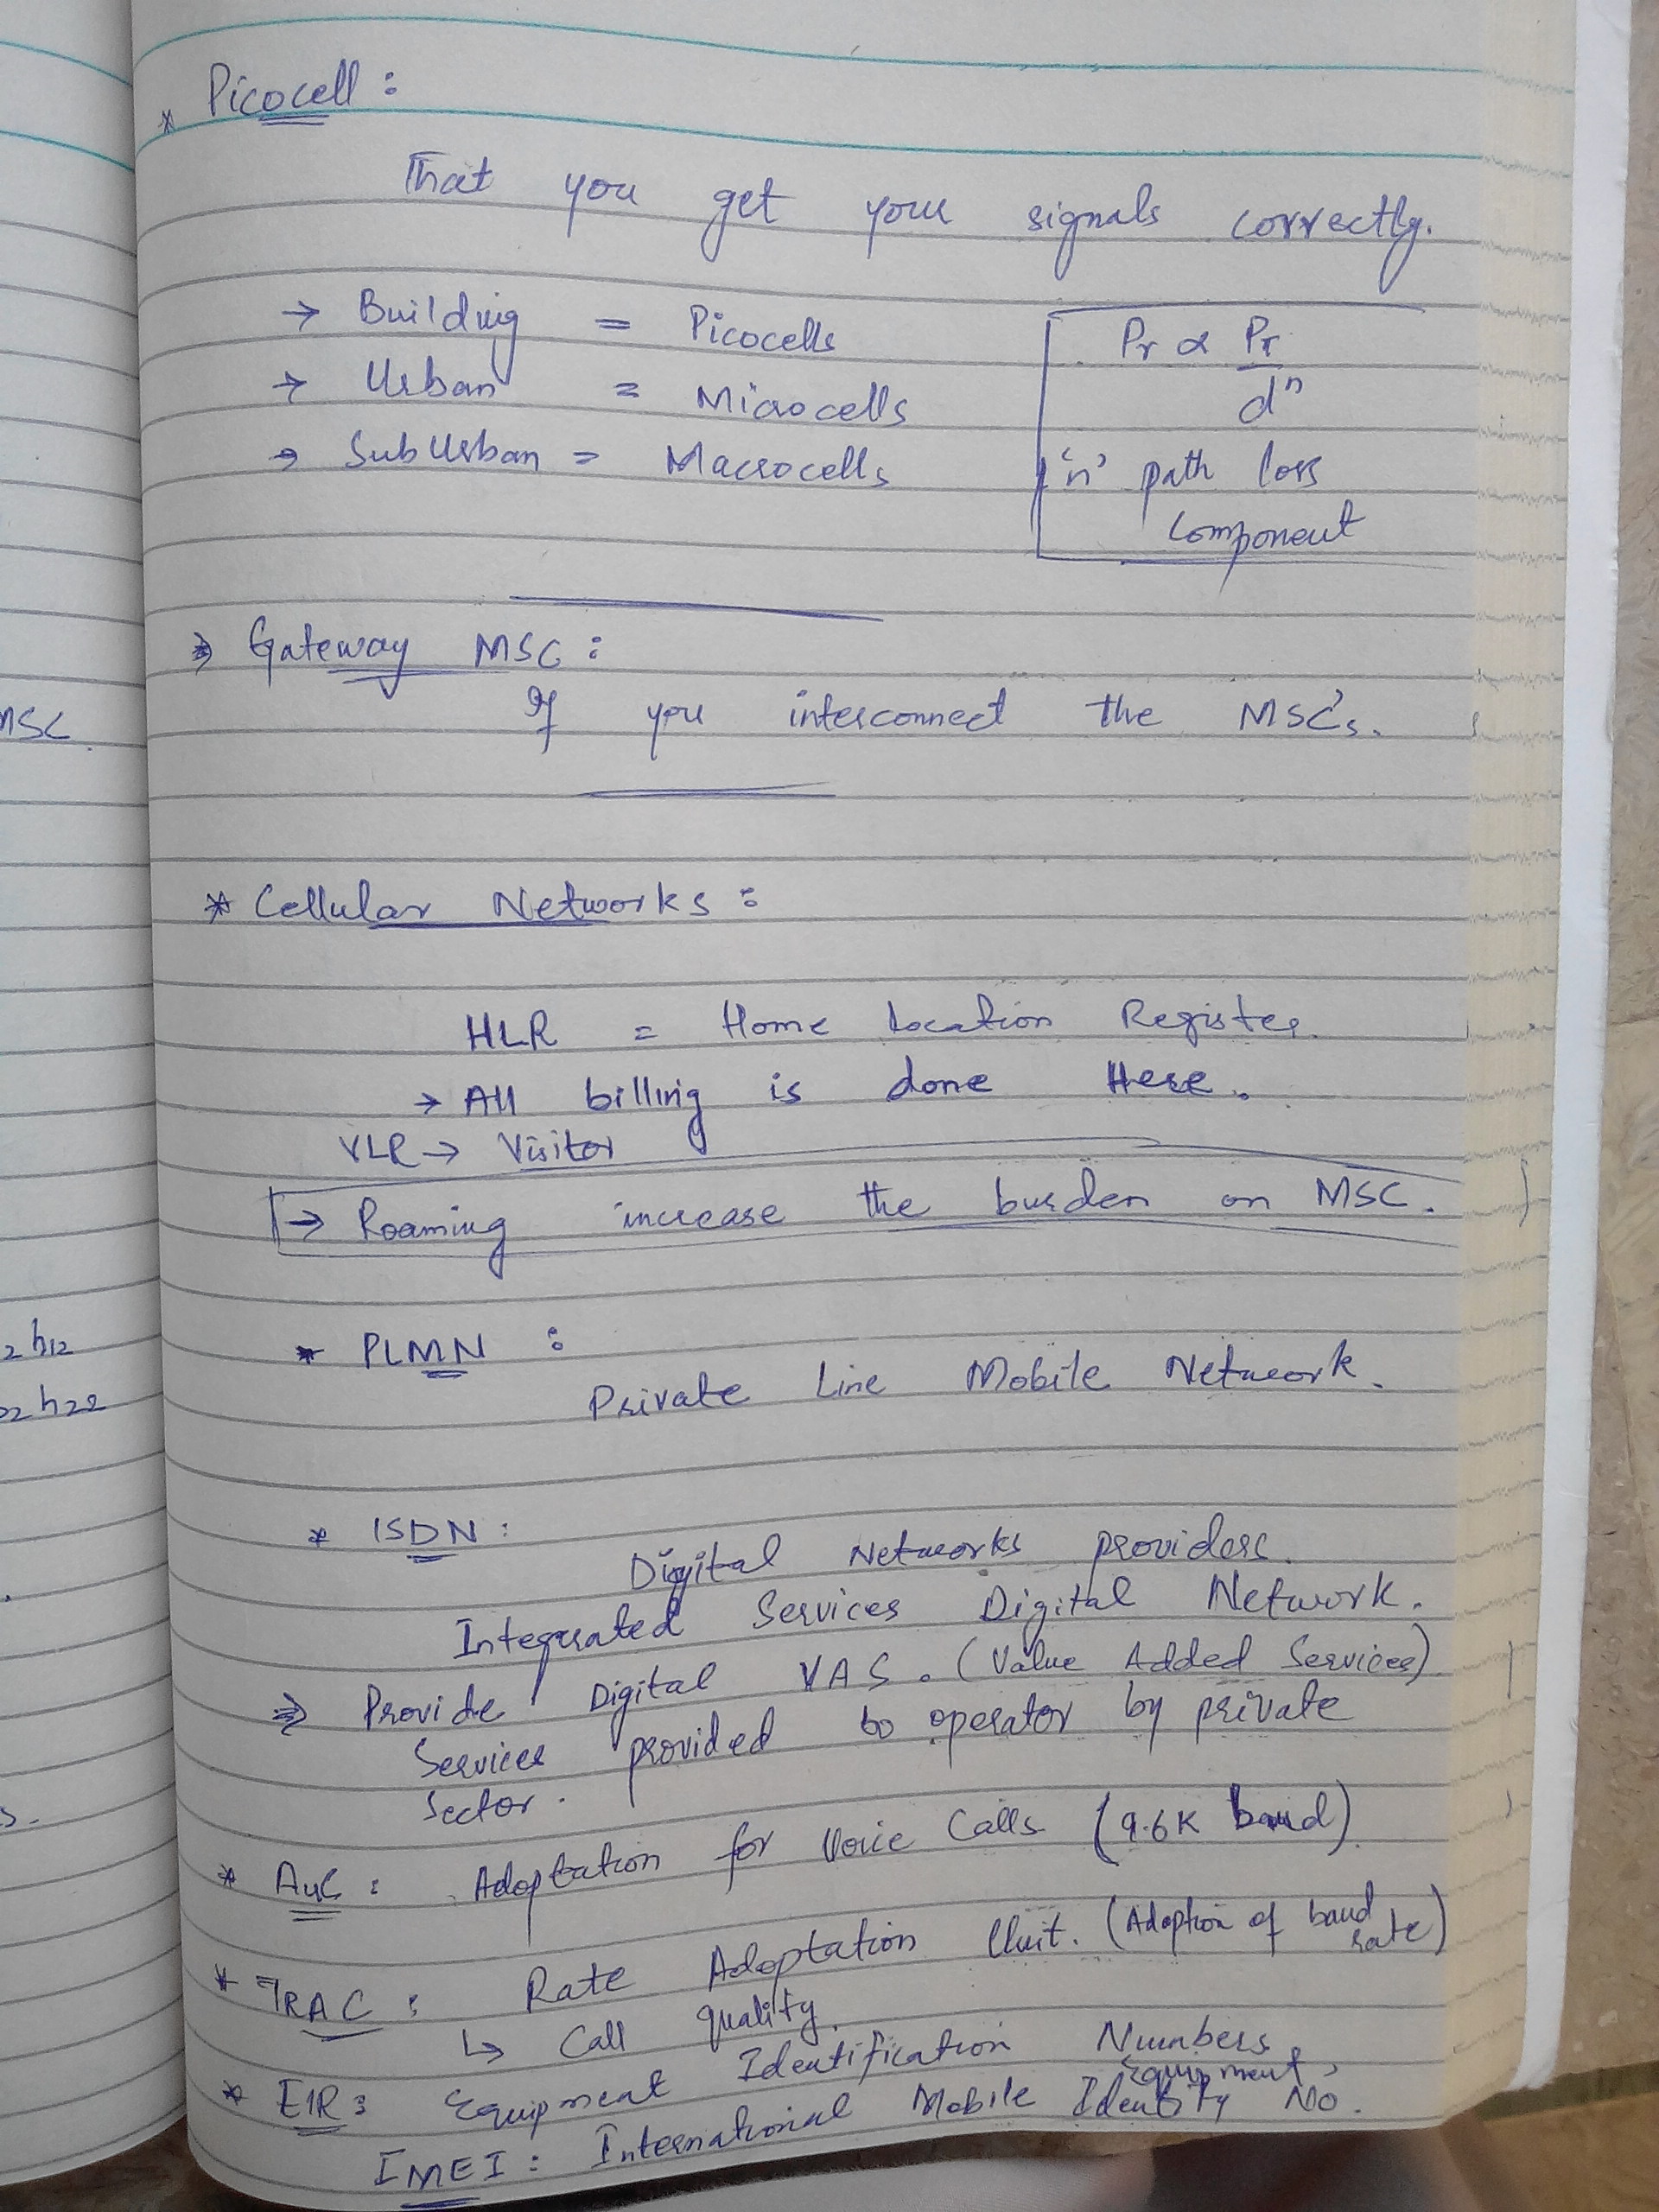 * Picocell :
That you get your signals correctly.
→ Building = Picocells
→ Urban = Microcells
→ SubUrban = Macrocells
Pr α PT
dⁿ
'n' path loss
component
⇒ Gateway MSC :
If you interconnect the MSC's.
MSC.
* Cellular Networks :
HLR = Home Location Register.
→ All billing is done Here.
VLR → Visitor
→ Roaming increase the burden on MSC.
2 h12
22 h22
* PLMN :
Private Line Mobile Network.
* ISDN :
Digital Networks providers.
Integrated Services Digital Network.
⇒ Provide Digital VAS. (Value Added Services)
Services provided to operator by private
Sector.
* AuC : Adaptation for Voice Calls (9.6K baud)
* TRAC : Rate Adaptation Unit. (Adaption of baud
rate)
↳ Call quality.
* EIR : Equipment Identification Numbers.
Equipment
IMEI : International Mobile Identity No.